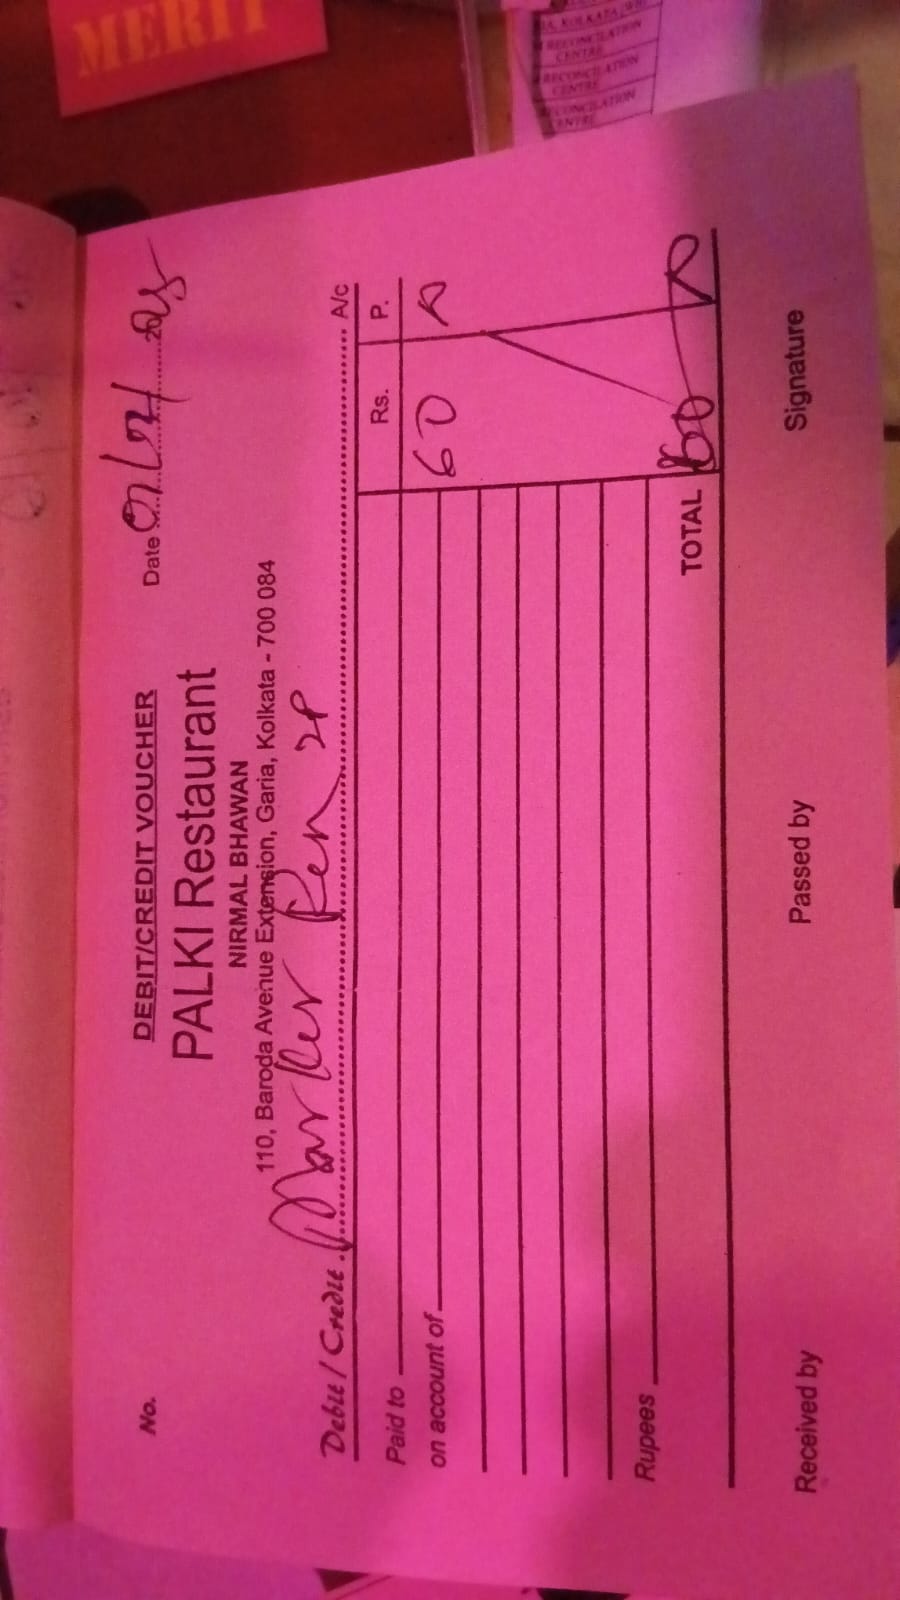 MERIT
A, KOLKATA (WB)
RECONCILATION
CENTRE
RECONCILATION
CENTRE
RECONCILATION
CENTRE
DEBIT/CREDIT VOUCHER
No.
Date
PALKI Restaurant
NIRMAL BHAWAN
110, Baroda Avenue Extension, Garia, Kolkata - 700 084
Debit / Credit Marker Pen A/c
Rs. P.
Paid to
on account of 60
Rupees
TOTAL 60
Received by Passed by Signature